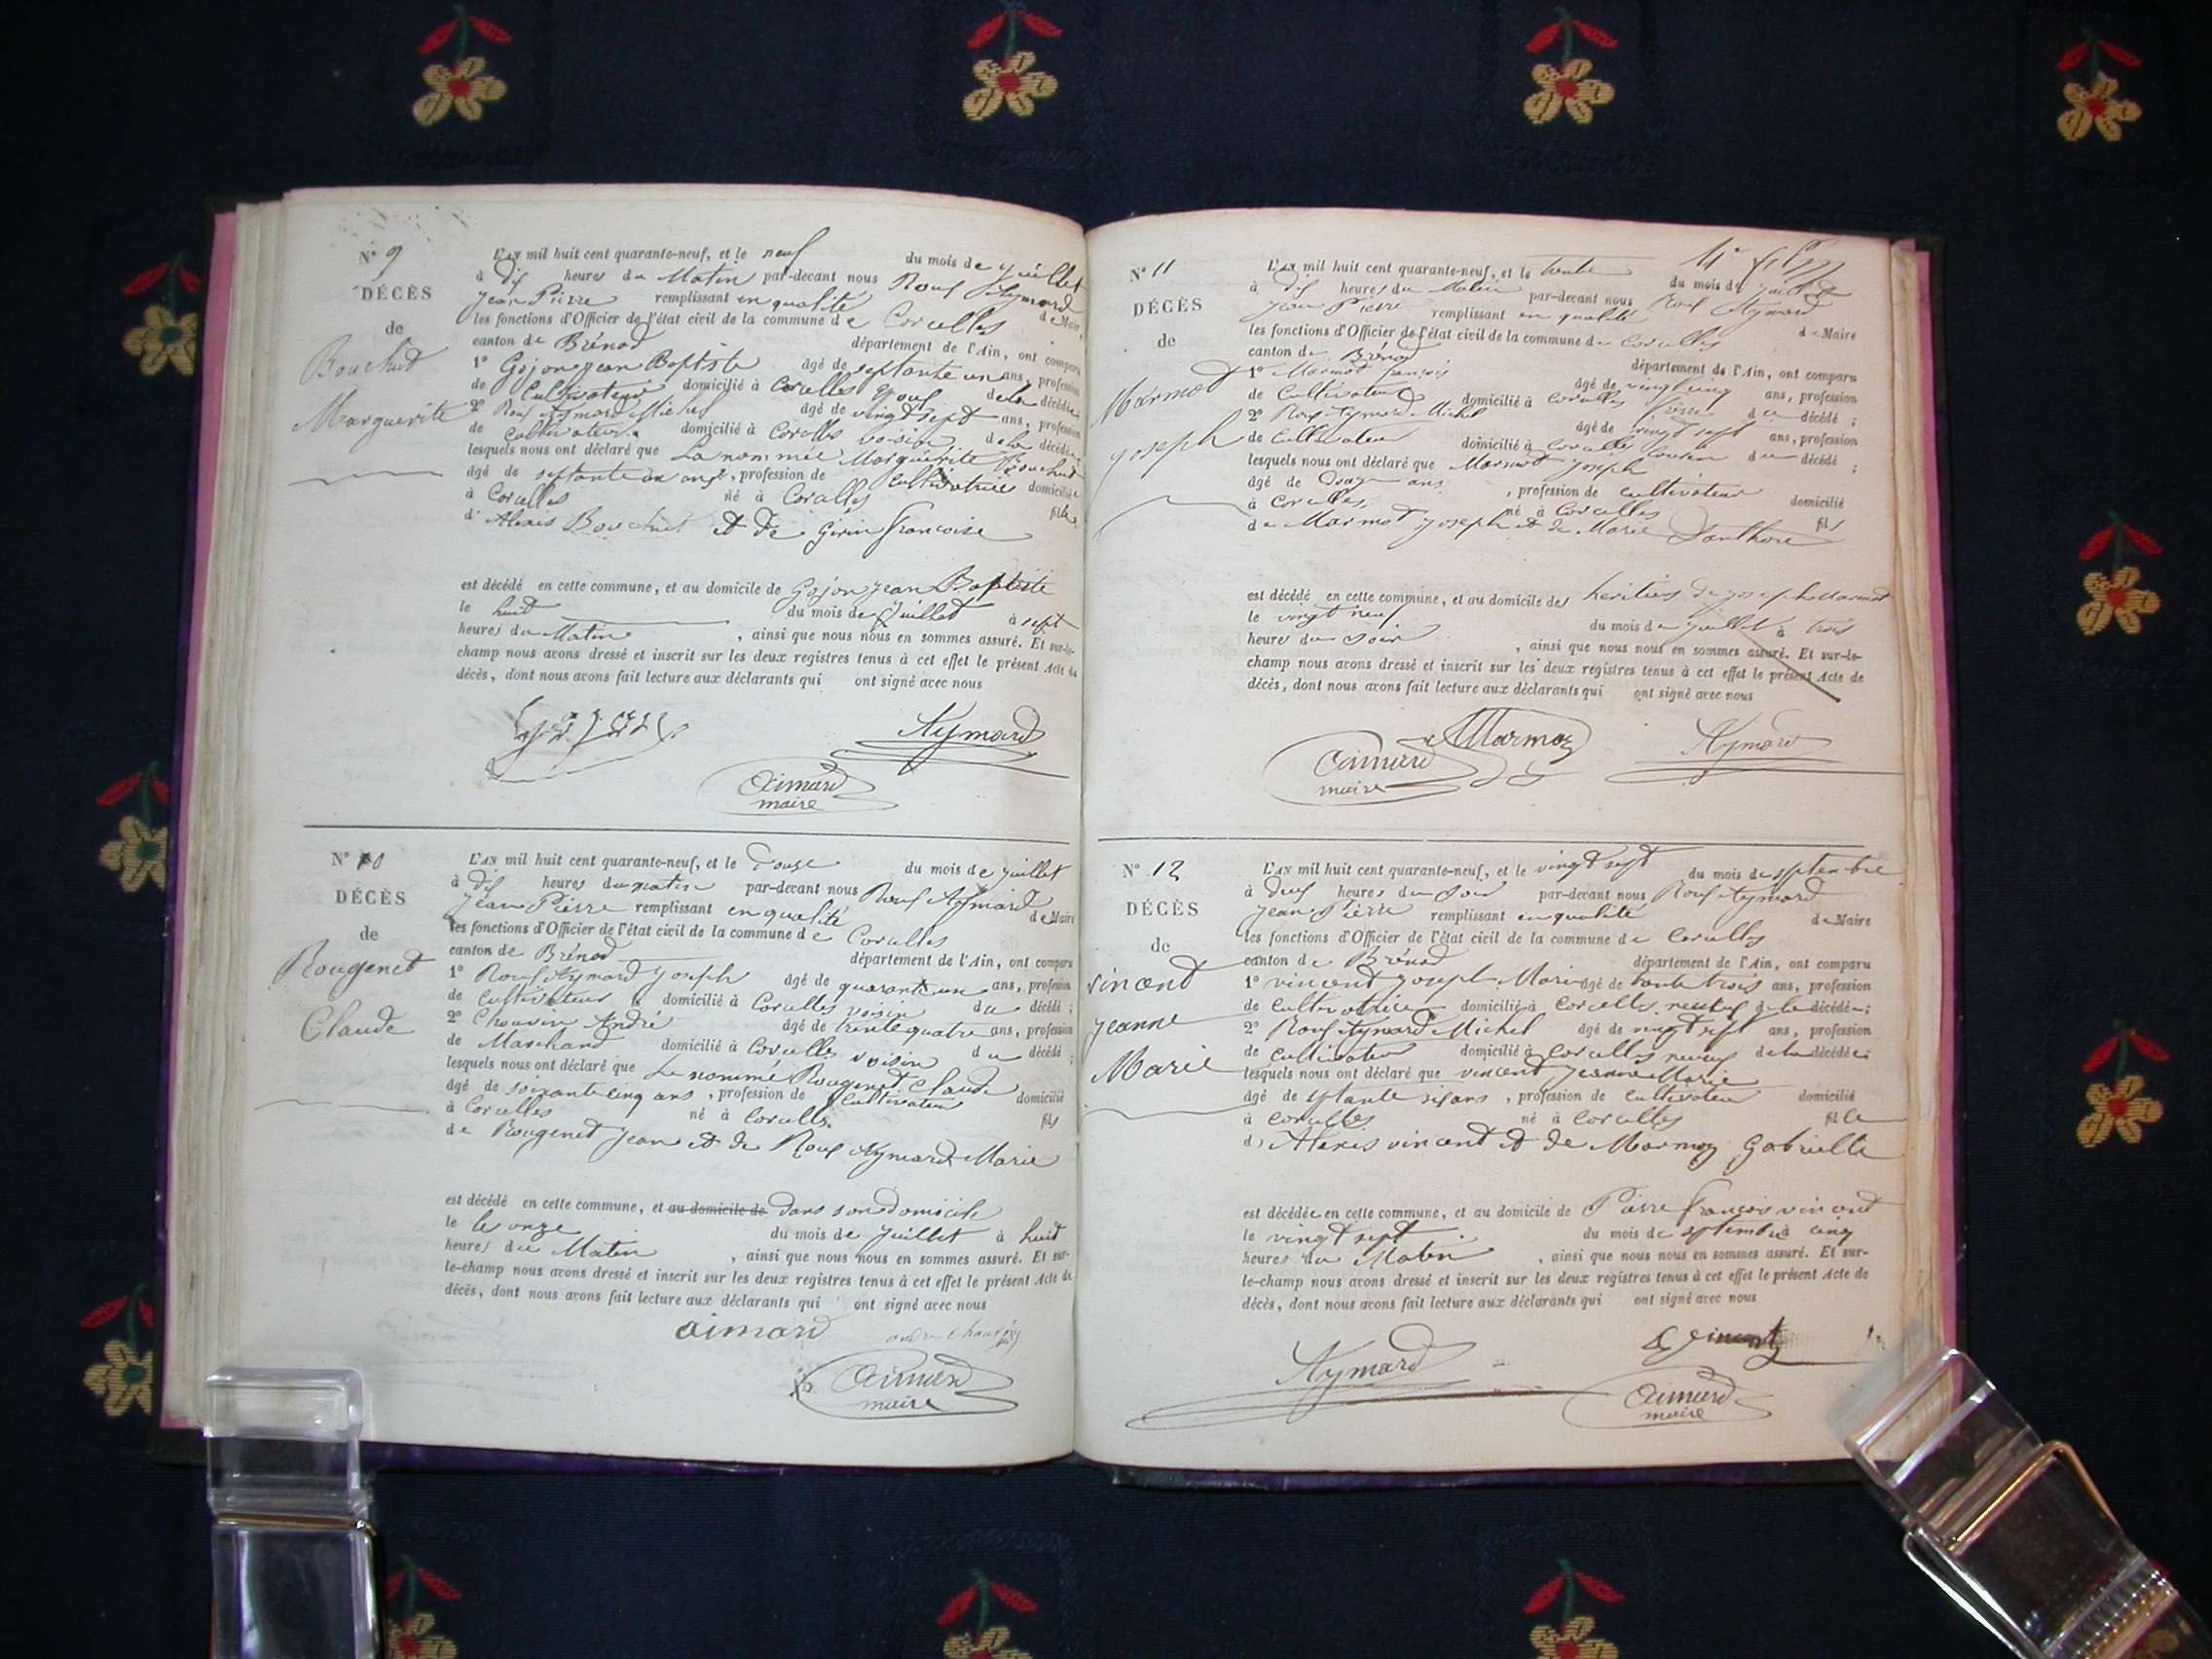 N° 9
DÉCÈS
de
Bouchud
Marguerite
L'AN mil huit cent quarante-neuf, et le neuf du mois de juillet
à dix heures du Matin par-devant nous Roux Aymard
Jean Pierre remplissant en qualité de Maire
les fonctions d'Officier de l'état civil de la commune de Corcelles
canton de Brénod département de l'Ain, ont comparu
1° Gojon Jean Baptiste âgé de septante un ans, profession
de Cultivateur domicilié à Corcelles de la décédée
2° Roux Aymard Michel âgé de vingt sept ans, profession
de Cultivateur domicilié à Corcelles voisin de la décédée
lesquels nous ont déclaré que La nommée Marguerite Bouchud
âgé de septante un ans, profession de Cultivatrice domicilié
à Corcelles né à Corcelles fille
d'Alexis Bouchud et de Girin françoise
est décédé en cette commune, et au domicile de Gojon Jean Baptiste
le huit du mois de Juillet à sept
heures du Matin, ainsi que nous nous en sommes assuré. Et sur-le-
champ nous avons dressé et inscrit sur les deux registres tenus à cet effet le présent Acte de
décès, dont nous avons fait lecture aux déclarants qui ont signé avec nous
Aymard
aimard
maire
N° 10
DÉCÈS
de
Rougenet
Claude
L'AN mil huit cent quarante-neuf, et le Douze du mois de juillet
à dix heures du matin par-devant nous Roux Aymard
Jean Pierre remplissant en qualité de Maire
les fonctions d'Officier de l'état civil de la commune de Corcelles
canton de Brénod département de l'Ain, ont comparu
1° Roux Aymard Joseph âgé de quarante un ans, profession
de cultivateur domicilié à Corcelles voisin du décédé ;
2° Chouvin André âgé de trente quatre ans, profession
de Marchand domicilié à Corcelles voisin du décédé ;
lesquels nous ont déclaré que Le nommé Rougenet Claude
âgé de soixante cinq ans, profession de Cultivateur domicilié
à Corcelles né à Corcelles fils
de Rougenet Jean et de Roux Aymard Marie
est décédé en cette commune, et au domicile de Dans son Domicile
le le onze du mois de Juillet à huit
heures du Matin, ainsi que nous nous en sommes assuré. Et sur-
le-champ nous avons dressé et inscrit sur les deux registres tenus à cet effet le présent Acte de
décès, dont nous avons fait lecture aux déclarants qui ont signé avec nous
aimard
aimard
maire
N° 11
DÉCÈS
de
Marmod
Joseph
L'AN mil huit cent quarante-neuf, et le trente du mois de juillet
à dix heures du Matin par-devant nous Roux Aymard
Jean Pierre remplissant en qualité de Maire
les fonctions d'Officier de l'état civil de la commune de Corcelles
canton de Brénod département de l'Ain, ont comparu
1° Marmod françois âgé de vingt cinq ans, profession
de Cultivateur domicilié à Corcelles du décédé ;
2° Roux Aymard Michel âgé de vingt sept ans, profession
de Cultivateur domicilié à Corcelles cousin du décédé ;
lesquels nous ont déclaré que Marmod Joseph
âgé de ans, profession de cultivateur domicilié
à Corcelles né à Corcelles fils
de Marmod Joseph et de Marie
est décédé en cette commune, et au domicile des héritiers de Joseph Marmod
le vingt neuf du mois de juillet à trois
heures du soir, ainsi que nous nous en sommes assuré. Et sur-le-
champ nous avons dressé et inscrit sur les deux registres tenus à cet effet le présent Acte de
décès, dont nous avons fait lecture aux déclarants qui ont signé avec nous
Marmoz
Aymard
aimard
maire
N° 12
DÉCÈS
de
vincend
Jeanne
Marie
L'AN mil huit cent quarante-neuf, et le vingt sept du mois de septembre
à deux heures du Soir par-devant nous Roux Aymard
Jean Pierre remplissant en qualité de Maire
les fonctions d'Officier de l'état civil de la commune de Corcelles
canton de Brénod département de l'Ain, ont comparu
1° vincent Joseph Marie âgé de trente trois ans, profession
de Cultivatrice domicilié à Corcelles de la décédée ;
2° Roux Aymard Michel âgé de vingt sept ans, profession
de Cultivateur domicilié à Corcelles neveux de la décédée ;
lesquels nous ont déclaré que vincent Jeanne Marie
âgé de septante six ans, profession de Cultivateur domicilié
à Corcelles né à Corcelles fille
d'Alexis vincent et de Marmoz Gabrielle
est décédée en cette commune, et au domicile de Pierre françois vincent
le vingt sept du mois de septembre à cinq
heures du Matin, ainsi que nous nous en sommes assuré. Et sur-
le-champ nous avons dressé et inscrit sur les deux registres tenus à cet effet le présent Acte de
décès, dont nous avons fait lecture aux déclarants qui ont signé avec nous
Vincent
Aymard
aimard
maire